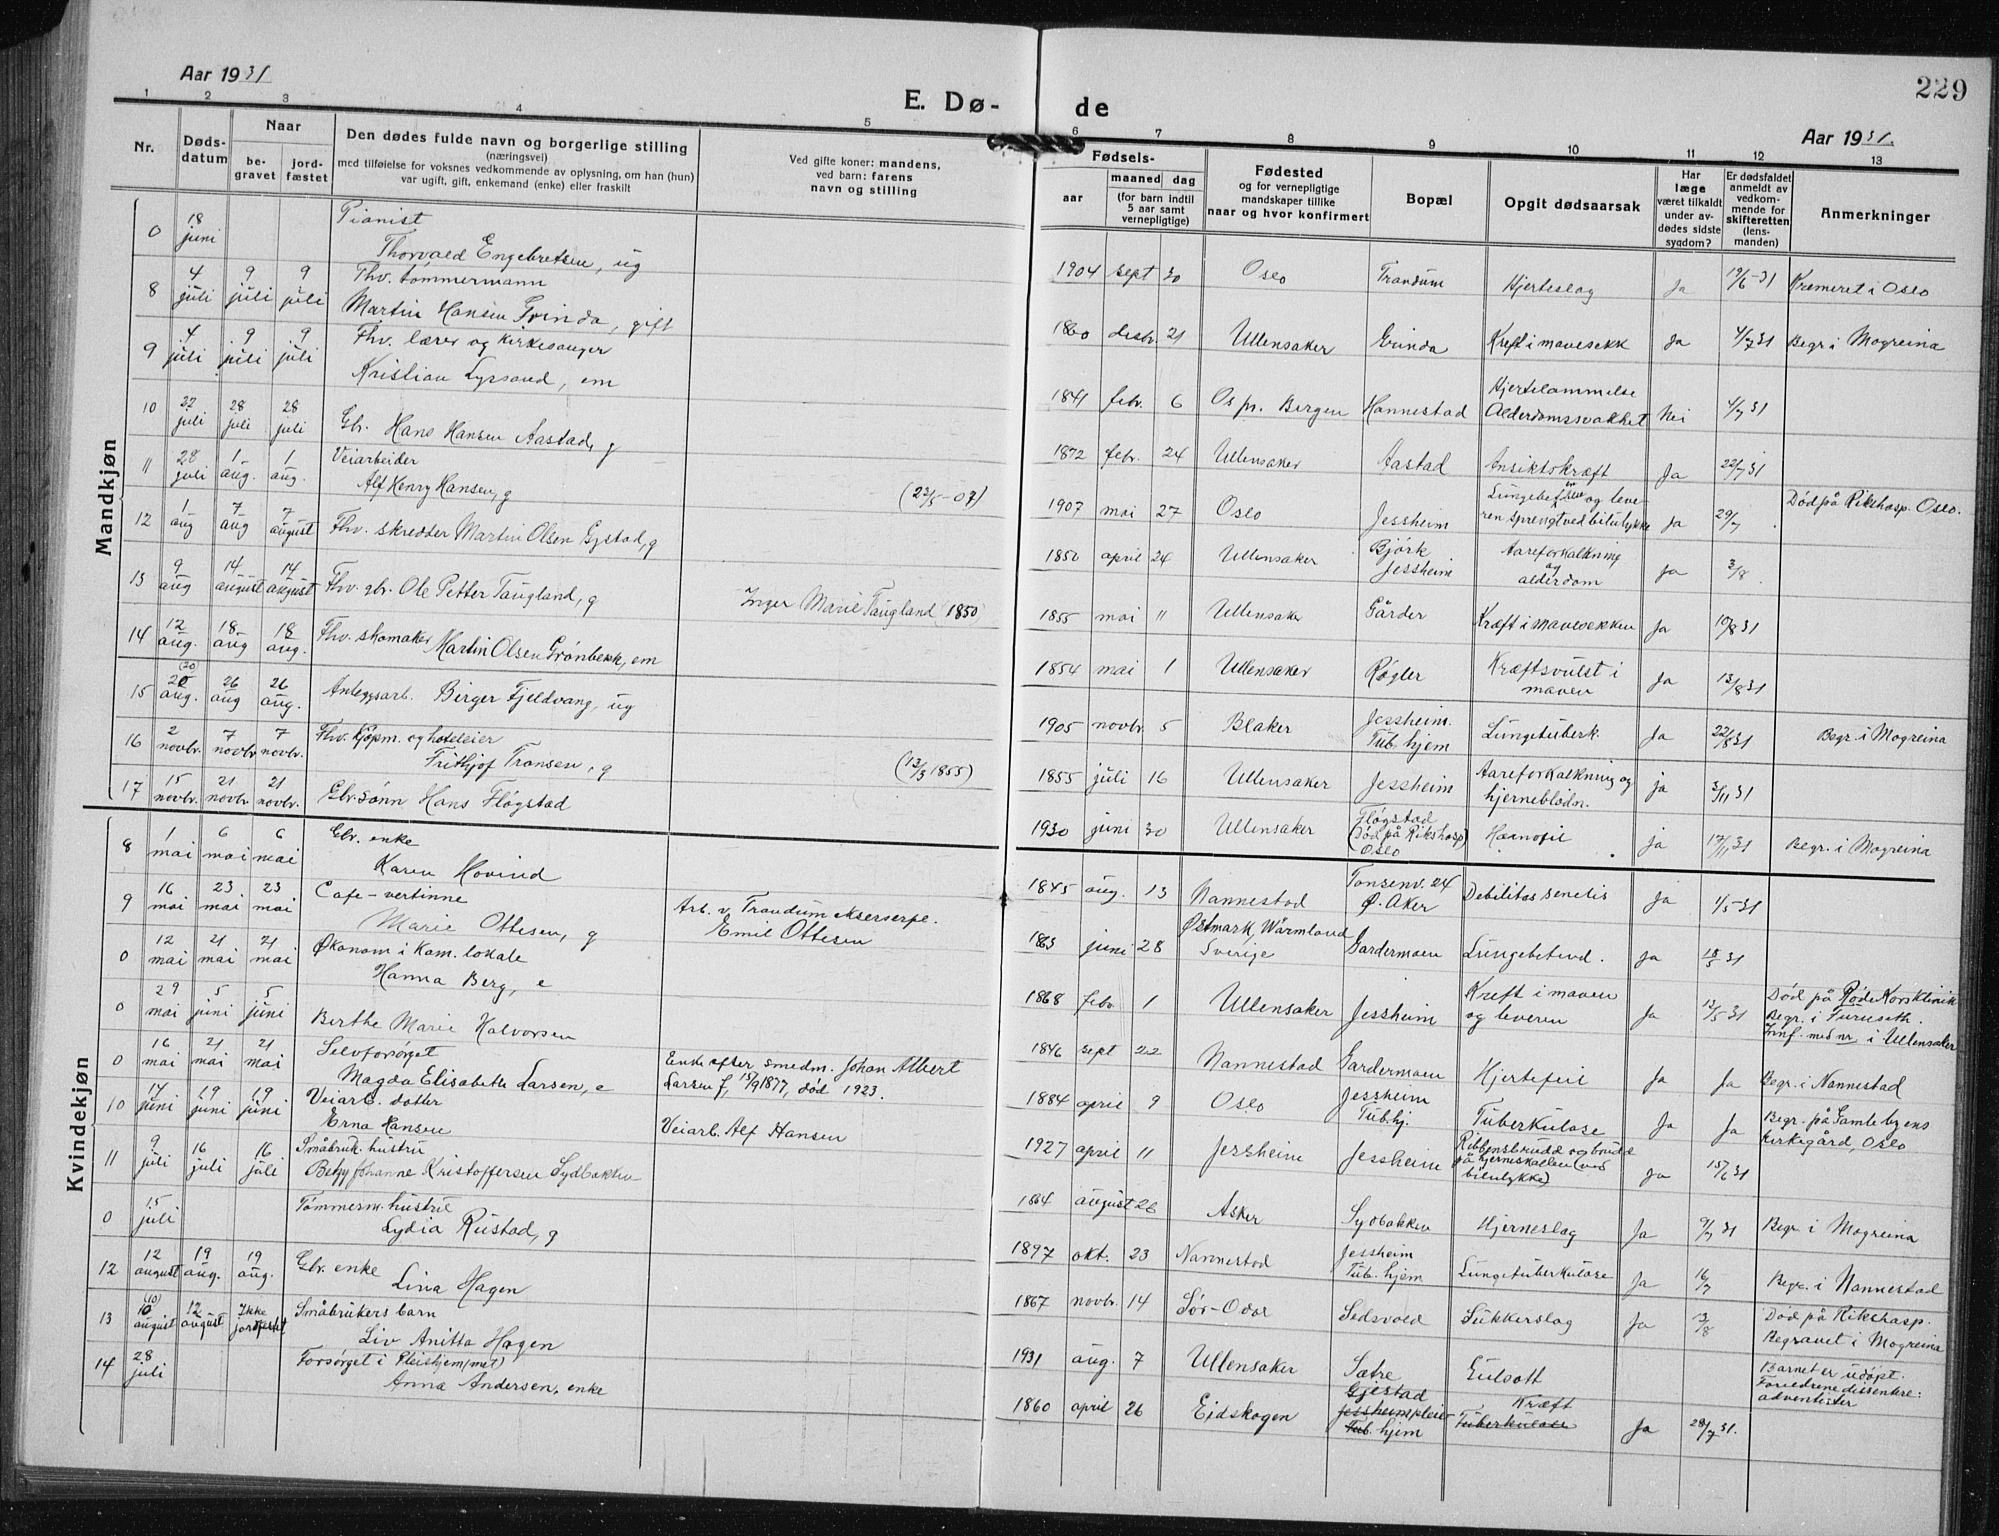 Aar 1931
E. Dø- de
229
Aar 1931.
1 2 3 4 5 6 7 8 9 10 11 12 13
Nr.
Døds-
datum
Naar
be-
gravet
jord-
fæstet
Den dødes fulde navn og borgerlige stilling
(næringsvei)
med tilføielse for voksnes vedkommende av oplysning, om han (hun)
var ugift, gift, enkemand (enke) eller fraskilt
Ved gifte koner: mandens,
ved barn: farens
navn og stilling
Fødsels-
aar
maaned dag
(for barn indtil
5 aar samt
vernepligtige)
Fødested
og for vernepligtige
mandskaper tillike
naar og hvor konfirmert
Bopæl
Opgit dødsaarsak
Har
læge
været tilkaldt
under av-
dødes sidste
sygdom?
Er dødsfaldet
anmeldt av
vedkom-
mende for
skifteretten
(lens-
manden)
Anmerkninger
Mandkjøn
0 18 juni Pianist
Thorvald Engebretsen, ug 1904 sept 30 Oslo Trandum Hjerteslag Ja 19/6-31 Kremeret i Oslo
8 4 juli 9 juli 9 juli Fhv. tømmermann
Martin Hansen Grinda, gift 1860 desbr. 21 Ullensaker Grinda Kreft i mavesekk Ja 4/7 31 Begr i Mogreina
9 4 juli 9 juli 9 juli Fhv. lærer og kirkesanger
Kristian Lyssand, em 1841 febr. 6 Os pr. Bergen Hannestad Hjertelammelse
Alderdomssvakhet Nei 4/7 31
10 22 juli 28 juli 28 juli Gbr. Hans Hansen Aastad, g 1872 febr. 24 Ullensaker Aastad Ansiktskræft Ja 22/7 31
11 28 juli 1 aug. 1 aug. Veiarbeider
Alf Henry Hansen, g (23/5-07) 1907 mai 27 Oslo Jessheim og leve-
ren sprengt ved bilulykke Ja 29/7 Død på Rikshosp. Oslo.
12 1 aug 7 aug 7 august Fhv. skredder Martin Olsen Gystad, g 1850 april 24 Ullensaker Bjørk
Jessheim Aareforkalkning
og
alderdom Ja 3/8
13 9 aug 14 august 14 august Fhv. gbr. Ole Petter Taugland, g Inger Marie Taugland 1850 1855 mai 11 Ullensaker Gårder Kræft i mavesekken Ja 10/8 31
14 12 aug. 18 aug 18 aug. Fhv. skomaker Martin Olsen Grønbekk, em 1854 mai 1 Ullensaker Røgler Kræftsvulst i
maven Ja 13/8 31
15 20 (20) aug. 26 aug 26 aug. Anleggsarb. Birger Fjeldvang, ug 1905 novbr. 5 Blaker Jessheim.
Tub. hjem Lungetuberk. Ja 22/8 31 Begr. i Mogreina
16 2 novbr. 7 novbr 7 novbr. Fhv. kjøpm. og hoteleier
Frithjof Transen, g (12/3 1855) 1855 juli 16 Ullensaker Jessheim Aareforkalkning og
hjerneblødn. ja 3/11 31
17 15 novbr. 21 novbr 21 novbr. Gbr. sønn Hans Fløgstad 1930 juni 30 Ullensaker Fløgstad
(Død på Rikshosp)
Oslo Hæmofili ja 17/11 31 Begr. i Mogreina
Kvindekjøn
8 1 mai 6 mai 6 mai Gbr. enke
Karen Hovind 1845 aug. 13 Nannestad Tonsenv. 24
Ø. Aker Debilitas senilis Ja 1/5-31
9 16 mai 23 mai 23 mai Cafe-vertinne
Marie Ottesen, g Arb. v. Trandum ekserserpl.
Emil Ottesen 1863 juni 28 Østmark, Wärmland
Sverige Gardermoen Lungebetend. Ja 18/5 31
0 12 mai 21 mai 21 mai Økonom i Kom. lokale
Hanna Berg, e 1868 febr. 1 Ullensaker Jessheim Kreft i maven
og leveren Ja 13/5 31 Død på Røde Korsklinik
Begr. i Furuseth.
Innf. med nr i Ullensaker
0 29 mai 5 juni 5 juni Berthe Marie Halvorsen 1846 sept 22 Nannestad Gardermoen Hjertefeil Ja Ja Begr. i Nannestad
0 16 mai 21 mai 21 mai Selvforsørget
Magda Elisabeth Larsen, e Enke efter smedm. Johan Albert
Larsen f. 15/9 1877, død 1923. 1884 april 9 Oslo Jessheim
Tub. hj. Tuberkulose Ja Ja Begr. på Gamlebyens
kirkegård, Oslo
10 14 juni 19 juni 19 juni Veiarb. dotter
Erna Hansen Veiarb. Alf Hansen 1927 april 11 Jessheim Jessheim Ribbensbrudd og brudd
på hjerneskallen (ved
bilulykke) Ja 15/6 31
11 9 juli 16 juli 16 juli Småbruk. hustru
Johanne Kristoffersen Sydbakken 1864 august 26 Asker Sydbakken Hjerneslag Ja 9/7 31 Begr. i Mogreina
0 15 juli Tømmerm. hustru
Lydia Rustad, g 1897 okt. 23 Nannestad Jessheim
Tub. hjem Lungetuberkulose Ja 16/7 Begr. i Nannestad
12 12 august 19 aug. 19 aug. Gbr. enke
Lina Hagen 1867 novbr. 14 Sør-Odal Sedsvold Sukkerslag Ja 13/8 Død på Rikshosp.
Begravet i Mogreina
13 (10) 10 august 12 august Ikke jordfestet Småbrukers barn
Liv Anitta Hagen 1931 aug. 7 Ullensaker Sætre Gulsott Barnet er udøpt.
Foreldrene dissentere:
adventister
14 28 juli Forsørget i Pleiehjem (met)
Anna Andersen, enke 1860 april 26 Eidskogen Gjestad
Jessheim pleie-
Tub. hjem Kræft
Tuberkulose Ja 28/7 31.